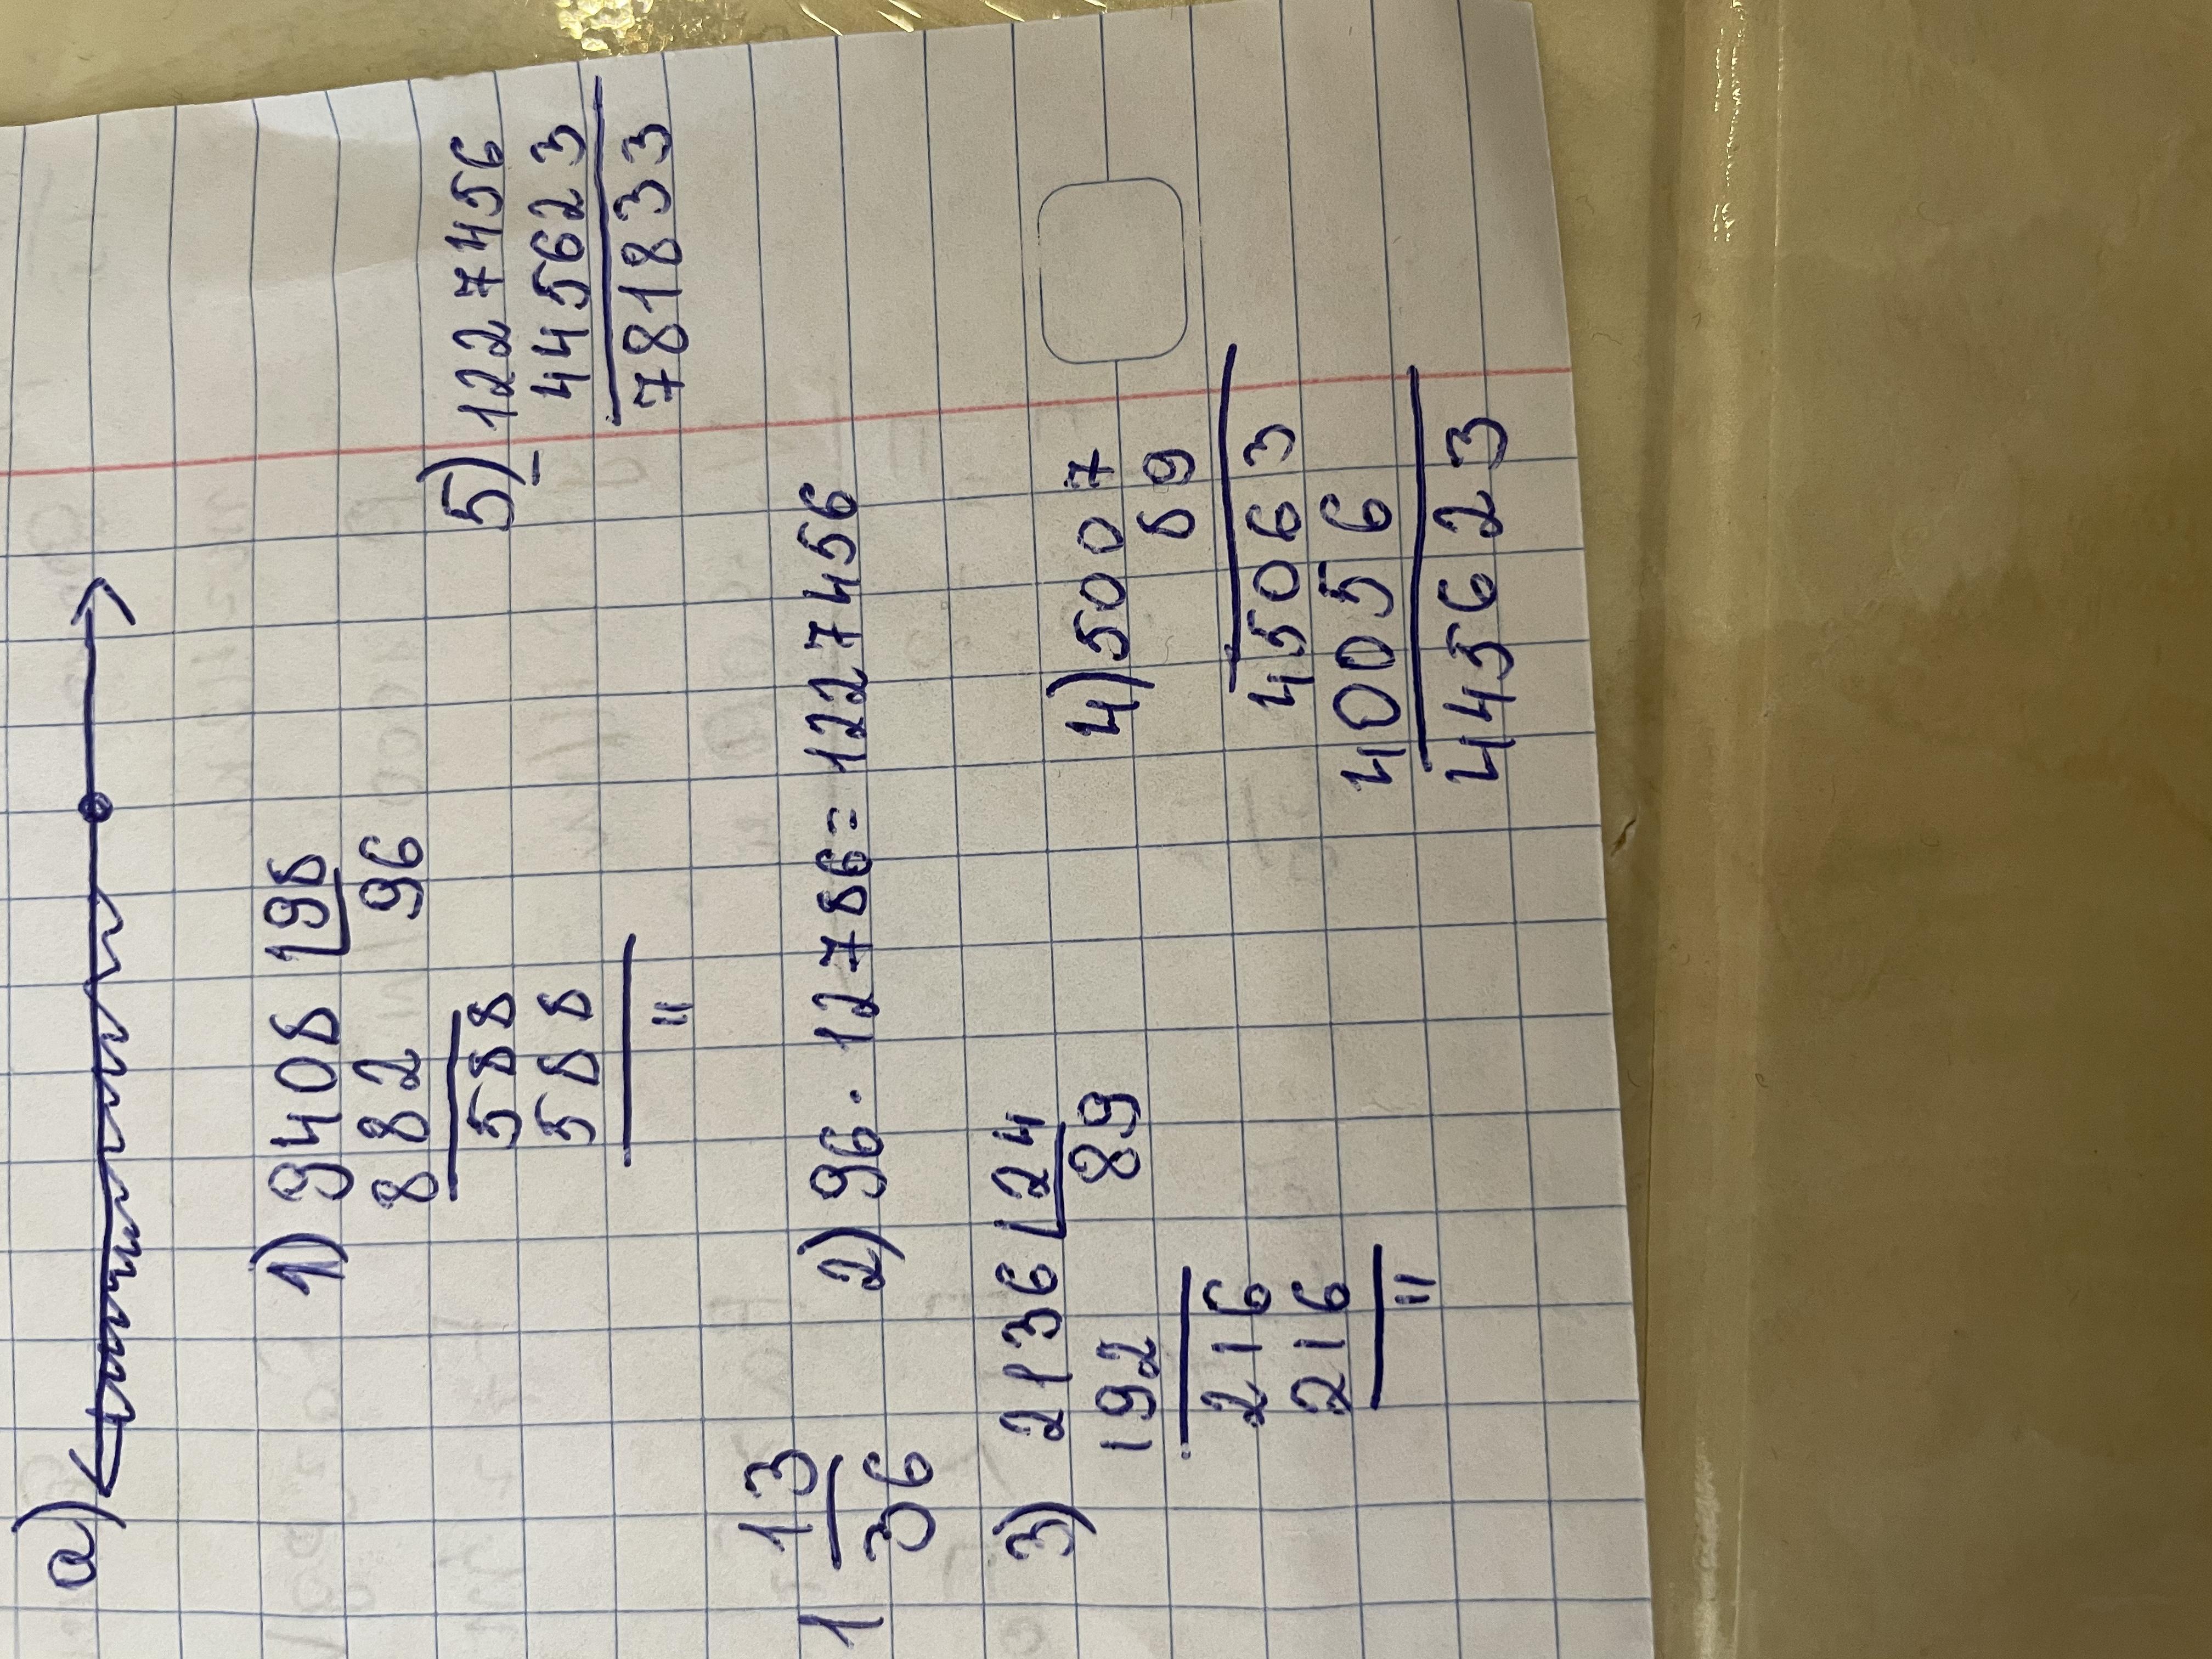 a)
1) 9408 | 98
882 96
588
588
"
5) 1227456
- 445623
781833
1 13/36
2) 96 . 12786 = 1227456
3) 2136 | 24
192 89
216
216
"
4) 5007
89
45063
40056
445623